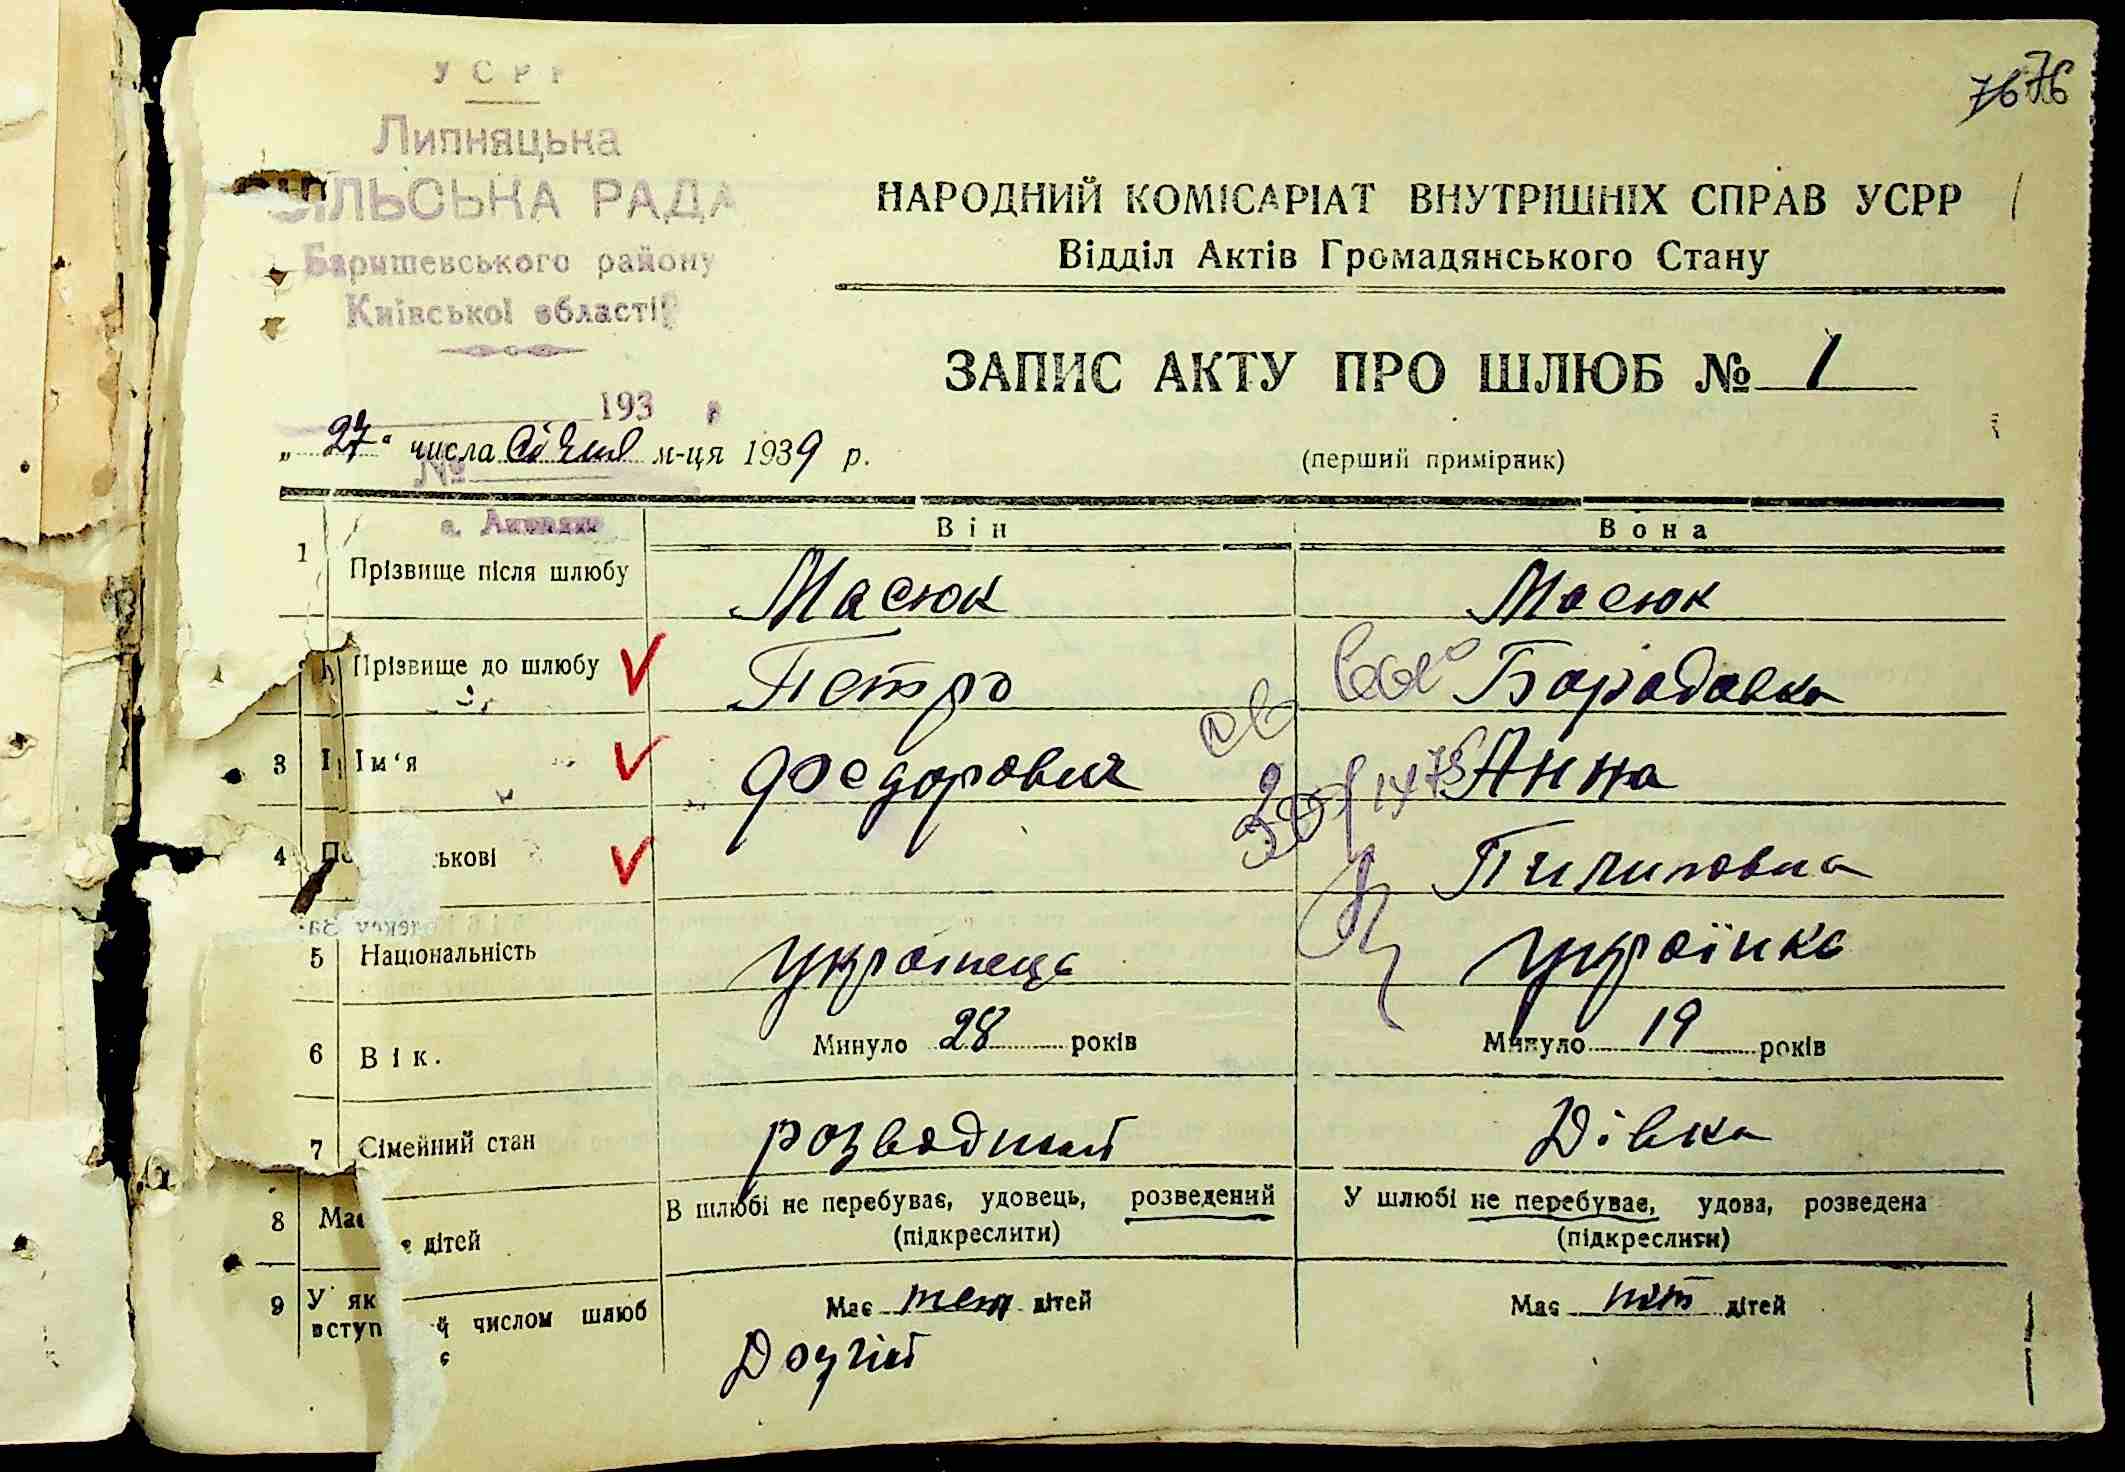 76 76
УСРР
Липняцька
СІЛЬСЬКА РАДА
Баришевського району
Київської області
193
№
НАРОДНИЙ КОМІСАРІАТ ВНУТРІШНІХ СПРАВ УСРР
Відділ Актів Громадянського Стану
ЗАПИС АКТУ ПРО ШЛЮБ № 1
„27“ числа Січня м-ця 1939 р.
(перший примірник)
Він Вона
1 Прізвище після шлюбу Масюк Масюк
Прізвище до шлюбу Петро Барадавка
3 Ім'я Федорович Анна
4 По ькові Пилиповна
5 Національність українець українка
6 Вік. Минуло 28 років Минуло 19 років
7 Сімейний стан розводний Дівка
В шлюбі не перебуває, удовець, розведений У шлюбі не перебуває, удова, розведена
(підкреслити) (підкреслити)
8 Має дітей
Має дітей Має нет дітей
9 У як числом шлюб
вступ
Другий